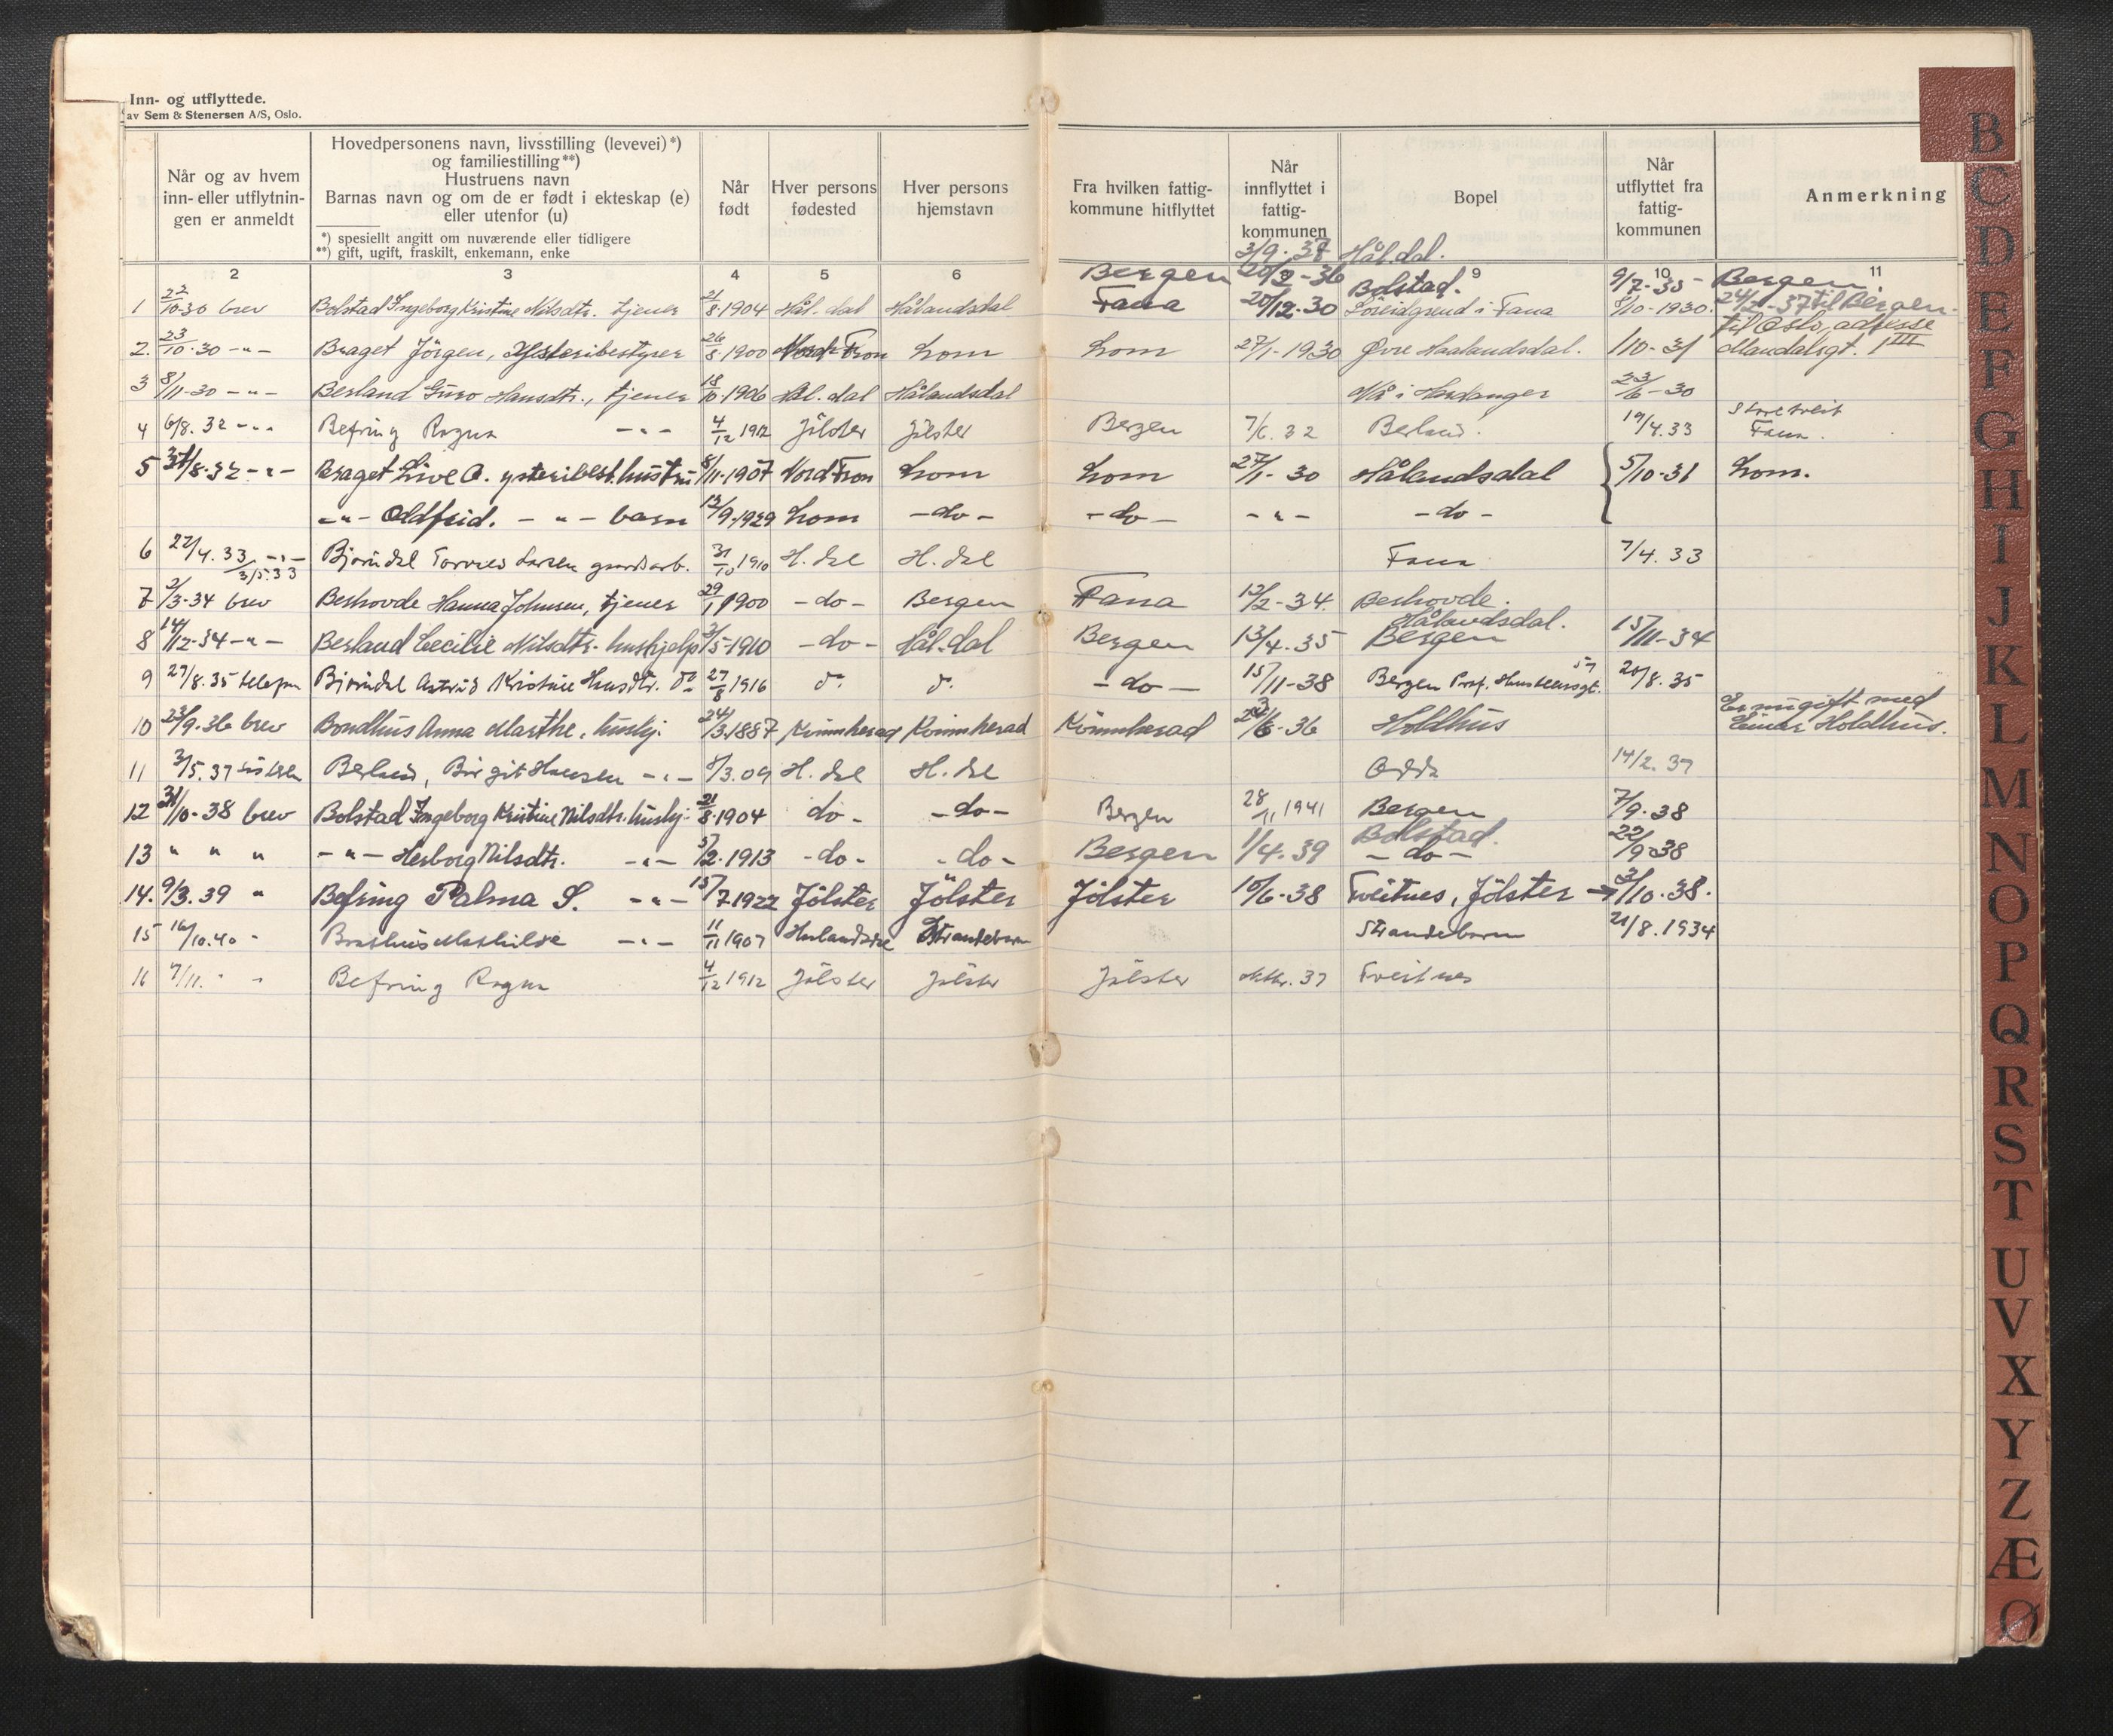 Inn- og utflyttede.
av Sem & Stenersen A/S, Oslo.
Når og av hvem
inn- eller utflytnin-
gen er anmeldt
Hovedpersonens navn, livsstilling (levevei) *)
og familiestilling **)
Hustruens navn
Barnas navn og om de er født i ekteskap (e)
eller utenfor (u)
*) spesiellt angitt om nuværende eller tidligere
**) gift, ugift, fraskilt, enkemann, enke
Når
født
Hver persons
fødested
Hver persons
hjemstavn
Fra hvilken fattig-
kommune hitflyttet
Når
innflyttet i
fattig-
kommunen
Bopel
Når
utflyttet fra
fattig-
kommunen
Anmerkning
2 3 4 5 6 9 10 11
3/9-37 Hål.dal.
Bergen 20/2-36 Bolstad. 9/7-35- Bergen.
1 22/10-30 brev Bolstad Ingeborg Kristine Nilsdtr. tjener 21/8-1904 Hål.dal Hålandsdal Fana 20/12-30 i Fana 8/10-1930. 24/2-37 til Bergen.
til Oslo, adresse
2. 23/10-30 -"- Braget Jörgen, Ysteribestyrer 26/8-1900 Nord-Fron Lom Lom 27/1-1930 Øvre Haalandsdal. 1/10-31 Mandalsgt. 1 III
3 8/11-30 -"- Berland Guro Hansdtr., tjener 18/10-1906 Hål.dal Hålandsdal Nå i Hardanger 23/6-30
4 6/8.32 -"- Befring Ragna -"- 4/12 1912 Jölster Jölster Bergen 7/6.32 Berland. 19/4.33 Storetveit
Fana.
5 31/8-32 -"- Braget Live O. ysteribest. hustru 8/11-1907 Nord Fron Lom Lom 27/1-30 Hålandsdal 5/10-31 Lom.
-"- Oddfrid. -"- barn 12/9-1929 Lom -do- -do- -"- -do-
6 22/4.33 -"- Bjørndal Torvald Larsen gaardsarb. 31/10 1910 H.dal H.dal Fana 7/4.33
3/5.33
7 2/3-34 brev Beshovde Hanna Johnsen, tjener 29/1 1900 -do- Bergen Fana 12/2-34. Beshovde.
Hålandsdal.
8 14/12-34 -"- Berland Cecilie Nilsdtr. hushjelp 3/5-1910 -do- Hål.dal Bergen 13/4.35 Bergen 15/11-34
9 27/8.35 telefon Bjørndal Astrid Kristine Hansdtr. do 27/8 1916 do do -do- 15/11-38 Bergen Prof. Hansteensgt. 57 20/8.35
Er nu gift med
10 23/9.36 brev Bondhus Anna Marthe, hushj. 24/3.1887 Kvinnherad Kvinnherad Kvinnherad 24/6-36 Holdhus Einar Holdhus.
11 3/5.37 Berland, Birgit Hansen -"- 8/3.09 H.dal H.dal Odda 14/2.37
12 31/10-38 brev Bolstad Ingeborg Kristine Nilsdtr. hushj. 21/8-1904 do- -do- Bergen 28/11 1941 Bergen 7/9-38
Bolstad.
13 " " " -"- Herborg Nilsdtr. -"- 5/2-1913 -do- -do- Bergen 1/4.39 -do- 22/9-38
14. 9/3.39 " Befring Palma S. -"- 15/7.1922 Jölster Jölster Jölster 10/6-38 Tveitnes, Jölster → 3/10-38.
15 16/10.40 - Mathilde -"- 11/11 1907 Strandebarm Strandebarm 21/8.1934
16 7/11. " " Befring Ragna 4/12 1912 Jölster Jölster Jölster 37 Tveitnes
B
C
D
E
F
G
H
I
J
K
L
M
N
O
P
Q
R
S
T
U
V
X
Y
Z
Æ
Ø